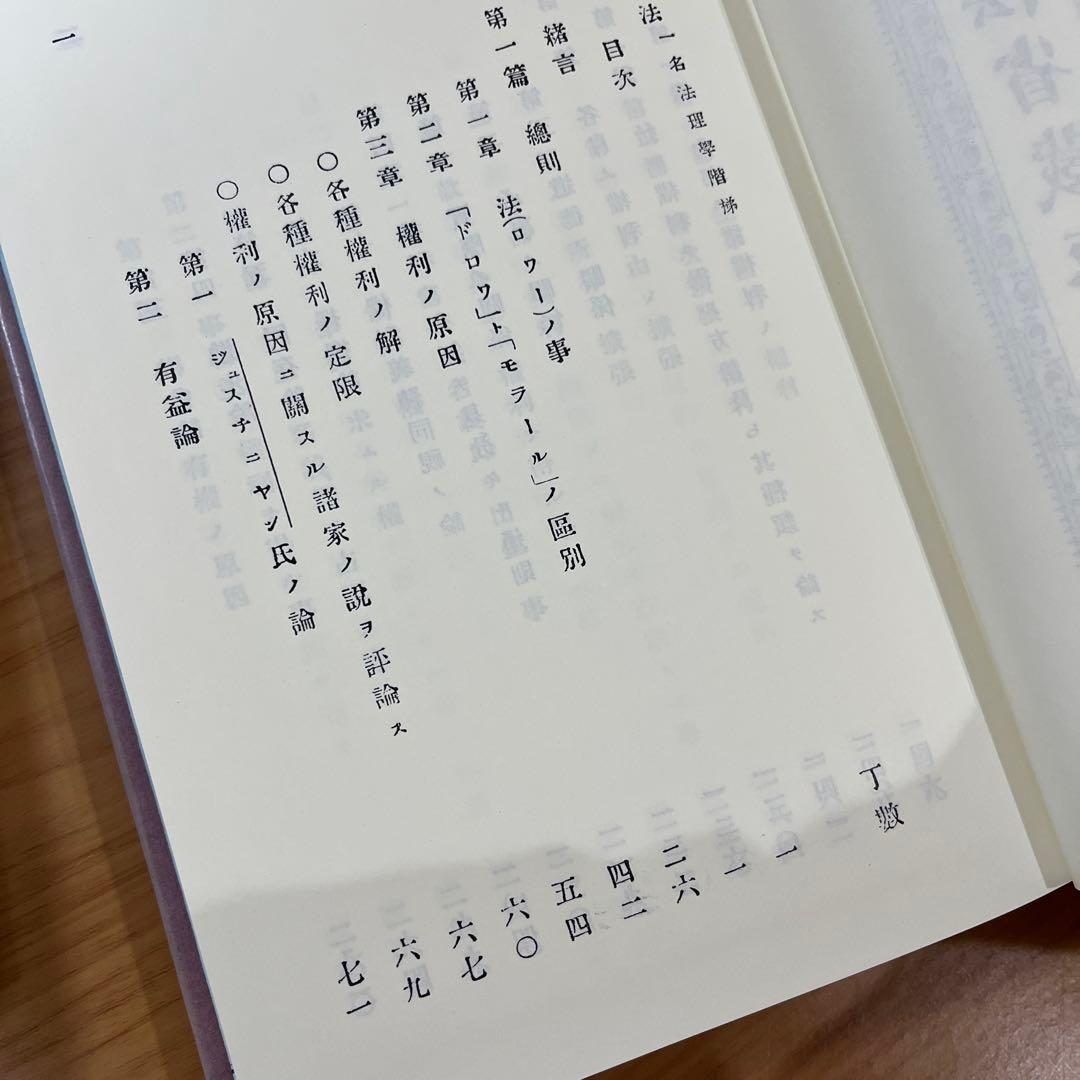 法一名法理學階梯
目次 丁數
緒言 一
第一篇 總則
第一章 法(ロワー)ノ事 一
第二章 「ドロワ」ト「モラール」ノ區別 二六
第三章 權利ノ原因 四二
○各種權利ノ解 五四
○各種權利ノ定限 六〇
○權利ノ原因ニ關スル諸家ノ說ヲ評論ス 六七
第一 ジュスチニヤン氏ノ論 六九
第二 有益論 七一
一